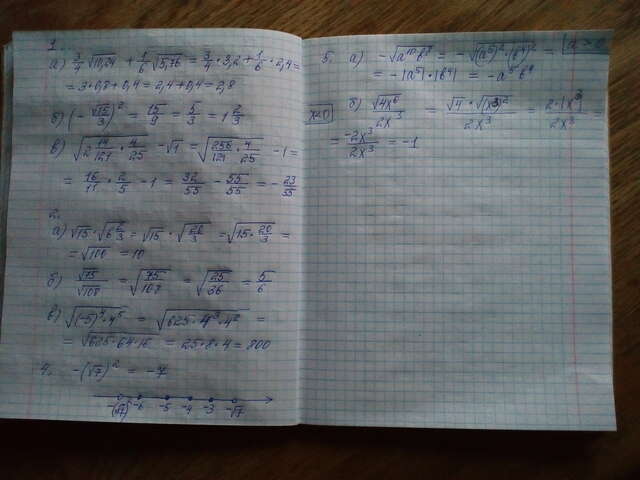 1.
а) 3/4 √10,24 + 1/6 √5,76 = 3/4 · 3,2 + 1/6 · 2,4 =
= 3 · 0,8 + 0,4 = 2,4 + 0,4 = 2,8
б) (- √15/3)² = 15/9 = 5/3 = 1 2/3
в) √(2 14/121 · 4/25) - √1 = √(256/121 · 4/25) - 1 =
= 16/11 · 2/5 - 1 = 32/55 - 55/55 = - 23/55
2.
а) √15 · √(6 2/3) = √15 · √(20/3) = √(15 · 20/3) =
= √100 = 10
б) √75/√108 = √(75/108) = √(25/36) = 5/6
в) √((-5)⁴ · 4⁵) = √(625 · 4³ · 4²) =
= √(625 · 64 · 16) = 25 · 8 · 4 = 800
4. -(√7)² = -7
-(√7)² -6 -5 -4 -3 -√7
5. а) -√(a¹⁰b⁸) = -√((a⁵)² · (b⁴)²) = a > 0
= -|a⁵| · |b⁴| = -a⁵b⁴
x<0 б) √(4x⁶)/2x³ = √4 · √(x³)²/2x³ = 2 · |x³|/2x³ =
= -2x³/2x³ = -1